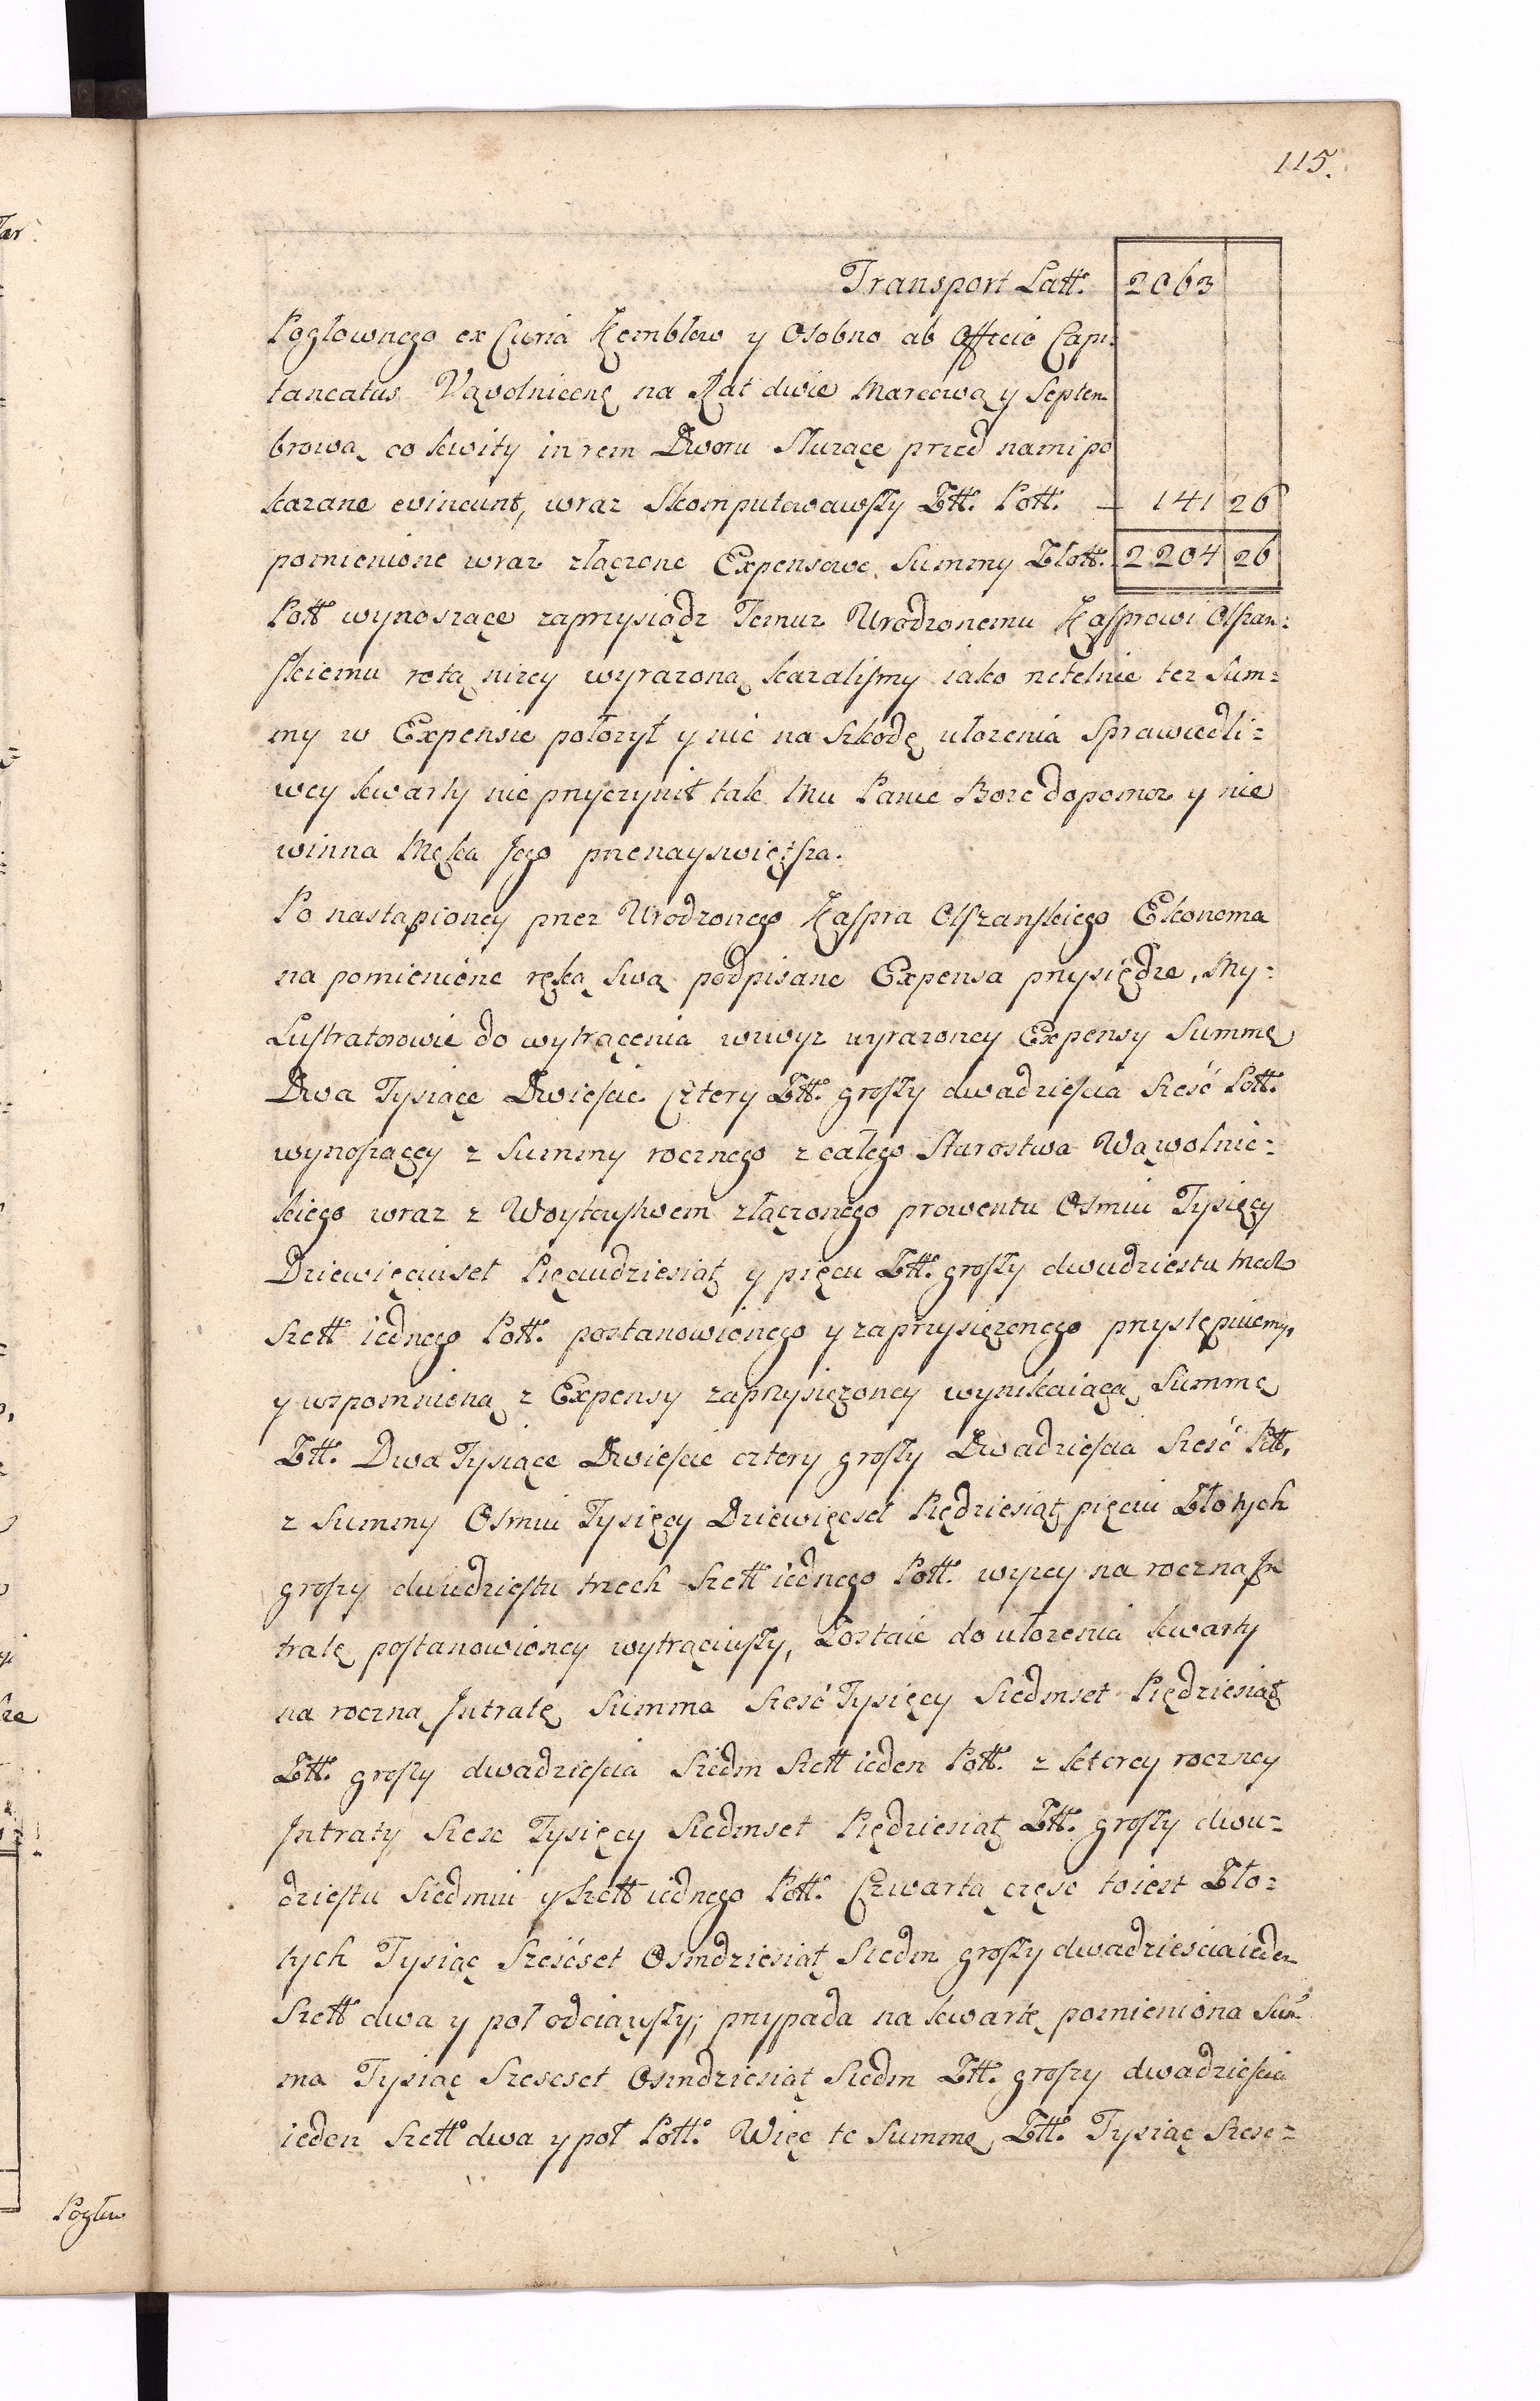 115.
Transport Latt. 2063
Pogłownego ex Curia Kęmbłow y Osobno ab Officio Capi:
taneatus Vąvolnicenę na Rat dwie Marcową y Septem
brową co kwity in rem Dworu Służące przed nami po
kazane evincunt, wraz Skomputowawszy Złł. Poll. — 141 26
pomienione wraz złączone Expensowe Summy Złott. 2204 26
Poll wynoszące zaprzysiądz Temuz Urodzonemu Kasprowi Olszan:
skiemu rotą nizey wyrazoną kazalismy iako rzetelnie tez Sum:
my w Expensie połozył y nic na Szkodę ułozenia Sprawiedli:
wey kwarty nie przyczynił tak Mu Panie Boze dopomoz y nie
winna Męka Jego przenayswiętsza.
Po nastąpioney przez Urodzonego Kaspra Olszanskiego Ekonoma
na pomienione ręką swą podpisane Expensa przysiędze, My:
Lustratorowie do wytrącenia wzwyz wyrazoney Expensy Summę
Dwa Tysiące Dwiescie Cztery Złł. groszy dwadziescia Sześć Poll.
wynoszącey z Summy rocznego z całego Starostwa Wąwolnic:
kiego wraz z Woytowstwem złączonego prowentu Osmiu Tysięcy
Dziewięciuset Pięciudziesiąt y pięciu Złł. groszy dwudziestu trzech
Szełł iednego Poll. postanowionego y zaprzysięzonego przystępuiemy,
y wspomnioną z Expensy zaprzysięzoney wynikaiącą Summę
Złł. Dwa Tysiące Dwiescie cztery groszy Dwadziescia Sześć Poll,
z Summy Osmiu Tysięcy Dziewięcset Piędziesiąt pięciu Złotych
groszy dwudziestu trzech Szełł iednego Poll. wyzey na roczną In
tratę postanowioney wytrąciwszy, Zostaie do ułozenia kwarty
na roczną Intratę Summa Sześć Tysięcy Siedmset Piędziesiąt
Złł. groszy dwadziescia Siedm Szełł ieden Poll. z ktorey roczney
Intraty Szesc Tysięcy Siedmset Piędziesiąt Złł. groszy dwu:
dziestu Siedmiu y Szełł iednego Poll. Czwartą częsc to iest Zło:
tych Tysiąc Sześćset Osmdziesiąt Siedm groszy dwadziescia ieden
Szełł dwa y poł odciąwszy; przypada na kwartę pomieniona Sum
ma Tysiąc Szescset Osmdziesiąt Siedm Złł. groszy dwadziescia
ieden Szełł dwa y poł Poll. Więc te Summę Złł. Tysiąc Szesc:
Pogłow